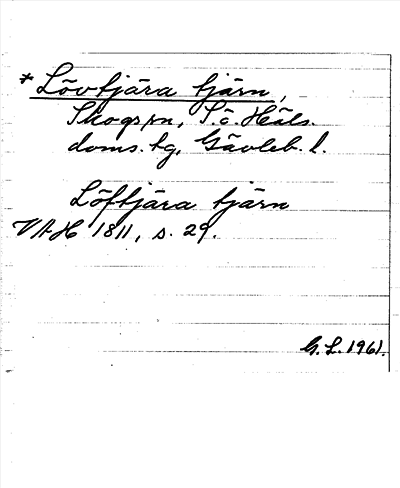 * Lövtjära tjärn,
Skogs sn, S.ö. Häls.
doms. tg, Gävleb. l.
Löftjära tjärn
VAH 1811, s. 29.
G. L. 1961.